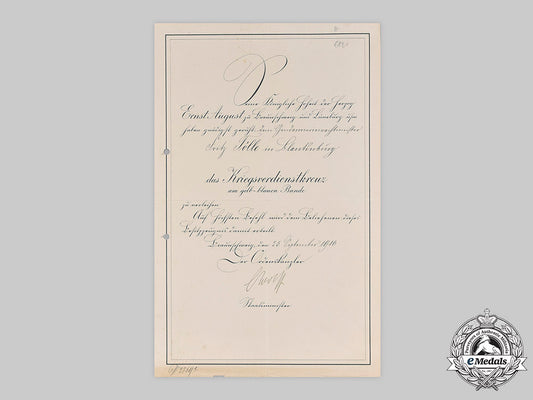 Seine Königliche Hoheit der Herzog
Ernst August zu Braunschweig und Lüneburg
haben gnädigst geruht, dem
Fritz Tölle in Blankenburg
das Kriegsverdienstkreuz
am gelb-blauen Bande
zu verleihen
Auf Höchsten Befehl wird dem Beliehenen dieses
Besitzzeugnis damit erteilt.
Braunschweig, den September 1916
Der Ordenskanzler
Staatsminister
eMedals